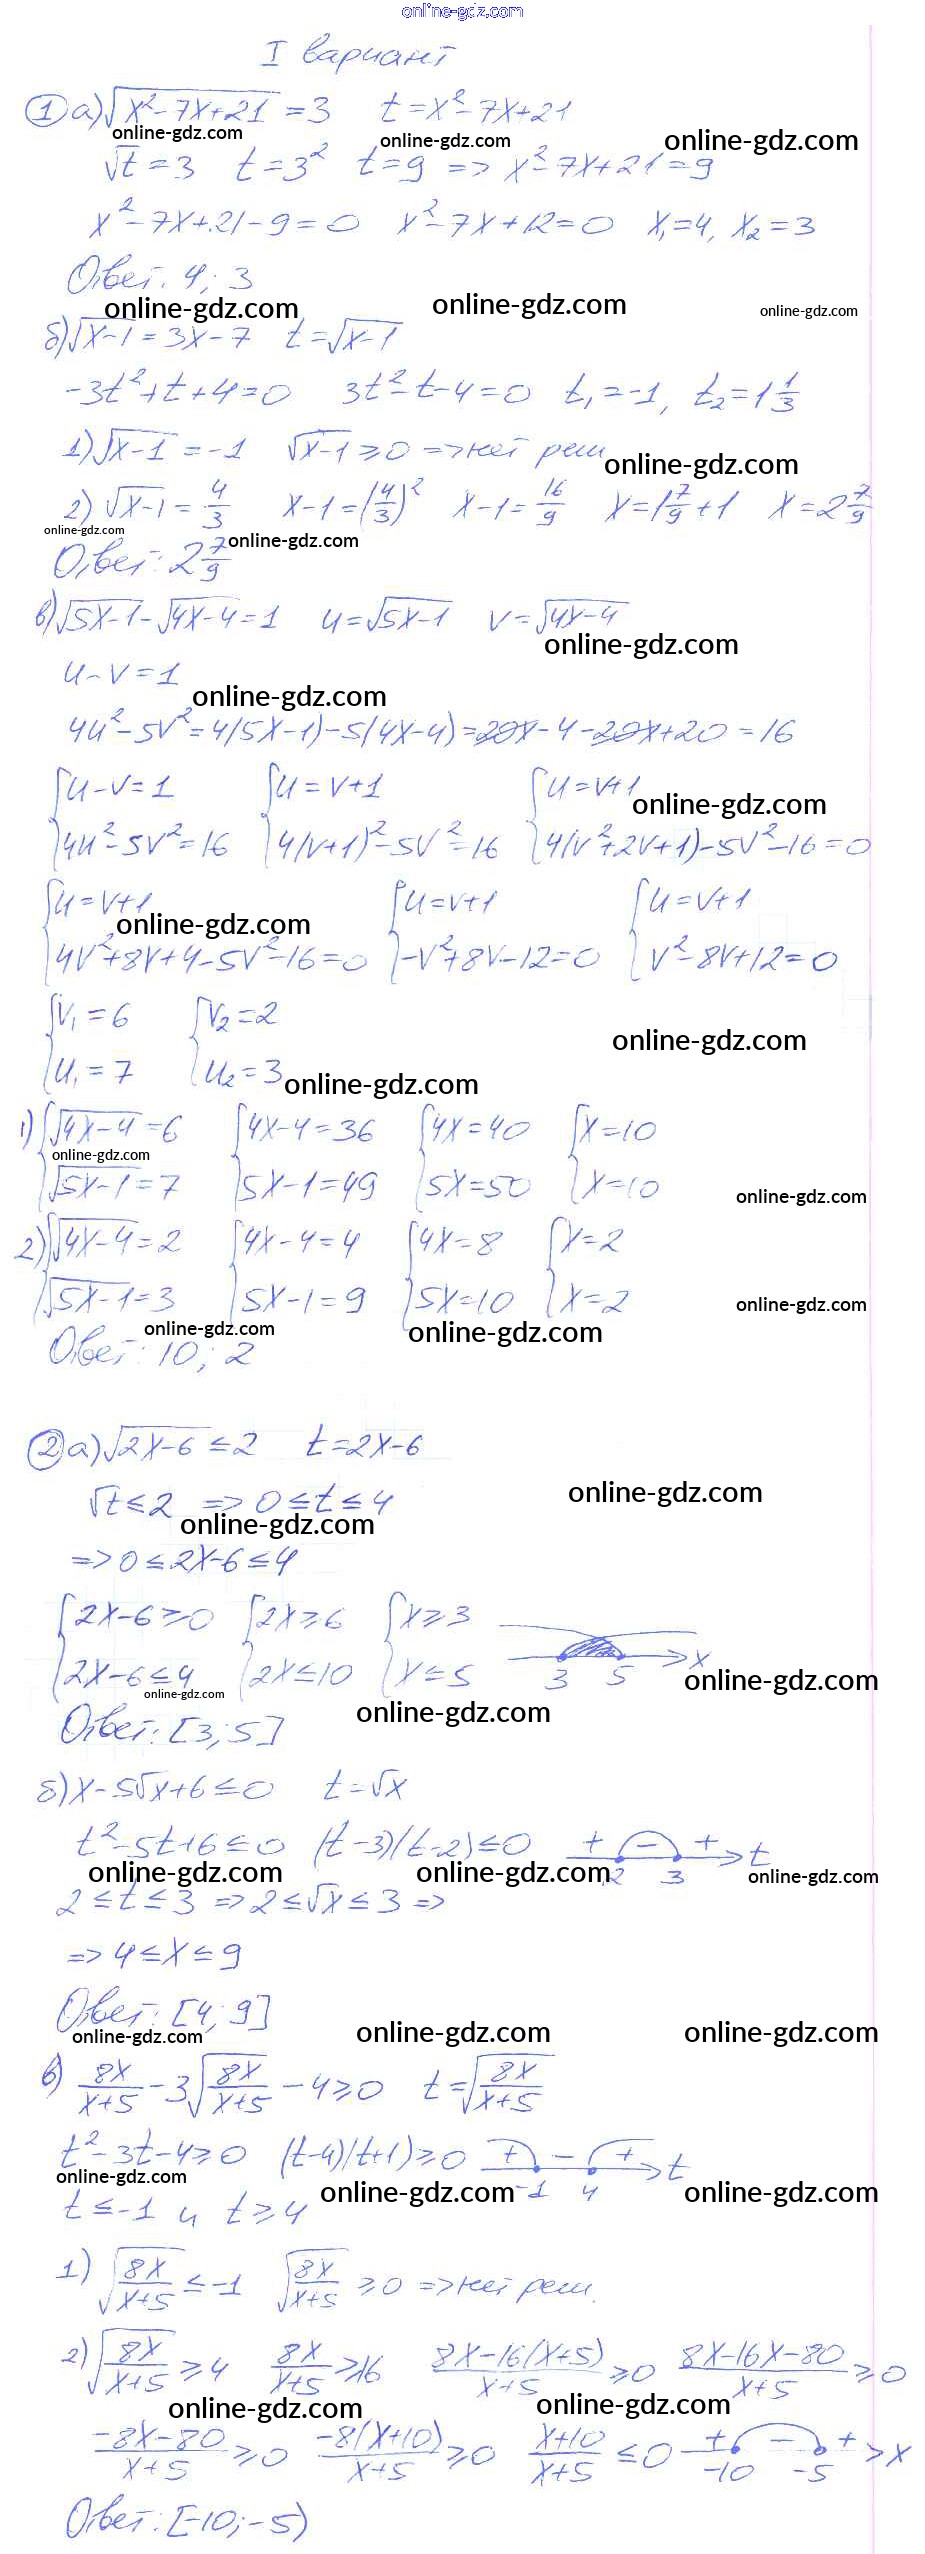 online-gdz.com
I вариант
① а) √(x² - 7x + 21) = 3   t = x² - 7x + 21
online-gdz.com online-gdz.com online-gdz.com
√t = 3   t = 3²   t = 9 => x² - 7x + 21 = 9
x² - 7x + 21 - 9 = 0   x² - 7x + 12 = 0   x₁ = 4, x₂ = 3
Ответ: 4; 3
online-gdz.com online-gdz.com online-gdz.com
б) √(x-1) = 3x - 7   t = √(x-1)
-3t² + t + 4 = 0   3t² - t - 4 = 0   t₁ = -1, t₂ = 1 1/3
1) √(x-1) = -1   √(x-1) ≥ 0 => нет реш
online-gdz.com
2) √(x-1) = 4/3   x - 1 = (4/3)²   x - 1 = 16/9   x = 1 7/9 + 1   x = 2 7/9
online-gdz.com online-gdz.com
Ответ: 2 7/9
в) √(5x-1) - √(4x-4) = 1   u = √(5x-1)   v = √(4x-4)
online-gdz.com
u - v = 1
online-gdz.com
4u² - 5v² = 4(5x-1) - 5(4x-4) = 20x - 4 - 20x + 20 = 16
{ u - v = 1   { u = v+1   { u = v+1
online-gdz.com
4u² - 5v² = 16   4(v+1)² - 5v² = 16   4(v² + 2v + 1) - 5v² - 16 = 0
{ u = v+1   { u = v+1   { u = v+1
online-gdz.com
4v² + 8v + 4 - 5v² - 16 = 0   -v² + 8v - 12 = 0   v² - 8v + 12 = 0
{ v₁ = 6   { v₂ = 2
online-gdz.com
u₁ = 7   u₂ = 3
online-gdz.com
1) { √(4x-4) = 6   { 4x - 4 = 36   { 4x = 40   { x = 10
online-gdz.com
√(5x-1) = 7   5x - 1 = 49   5x = 50   x = 10
online-gdz.com
2) { √(4x-4) = 2   { 4x - 4 = 4   { 4x = 8   { x = 2
√(5x-1) = 3   5x - 1 = 9   5x = 10   x = 2
online-gdz.com
online-gdz.com online-gdz.com
Ответ: 10; 2
② а) √(2x-6) ≤ 2   t = 2x - 6
√t ≤ 2 => 0 ≤ t ≤ 4
online-gdz.com
online-gdz.com
=> 0 ≤ 2x - 6 ≤ 4
{ 2x - 6 ≥ 0   { 2x ≥ 6   { x ≥ 3
2x - 6 ≤ 4   2x ≤ 10   x ≤ 5   3   5   x
online-gdz.com online-gdz.com
online-gdz.com
Ответ: [3; 5]
б) x - 5√x + 6 ≤ 0   t = √x
t² - 5t + 6 ≤ 0   (t-3)(t-2) ≤ 0   + - +   2   3   t
online-gdz.com online-gdz.com online-gdz.com
2 ≤ t ≤ 3 => 2 ≤ √x ≤ 3 =>
=> 4 ≤ x ≤ 9
Ответ: [4; 9]
online-gdz.com online-gdz.com online-gdz.com
в) 8x/(x+5) - 3√(8x/(x+5)) - 4 ≥ 0   t = √(8x/(x+5))
t² - 3t - 4 ≥ 0   (t-4)(t+1) ≥ 0   + - +   -1   4   t
online-gdz.com online-gdz.com online-gdz.com
t ≤ -1 и t ≥ 4
1) √(8x/(x+5)) ≤ -1   √(8x/(x+5)) ≥ 0 => нет реш.
2) √(8x/(x+5)) ≥ 4   8x/(x+5) ≥ 16   (8x-16(x+5))/(x+5) ≥ 0   (8x-16x-80)/(x+5) ≥ 0
online-gdz.com online-gdz.com
(-8x-80)/(x+5) ≥ 0   -8(x+10)/(x+5) ≥ 0   (x+10)/(x+5) ≤ 0   + - +   -10   -5   x
Ответ: [-10; -5)